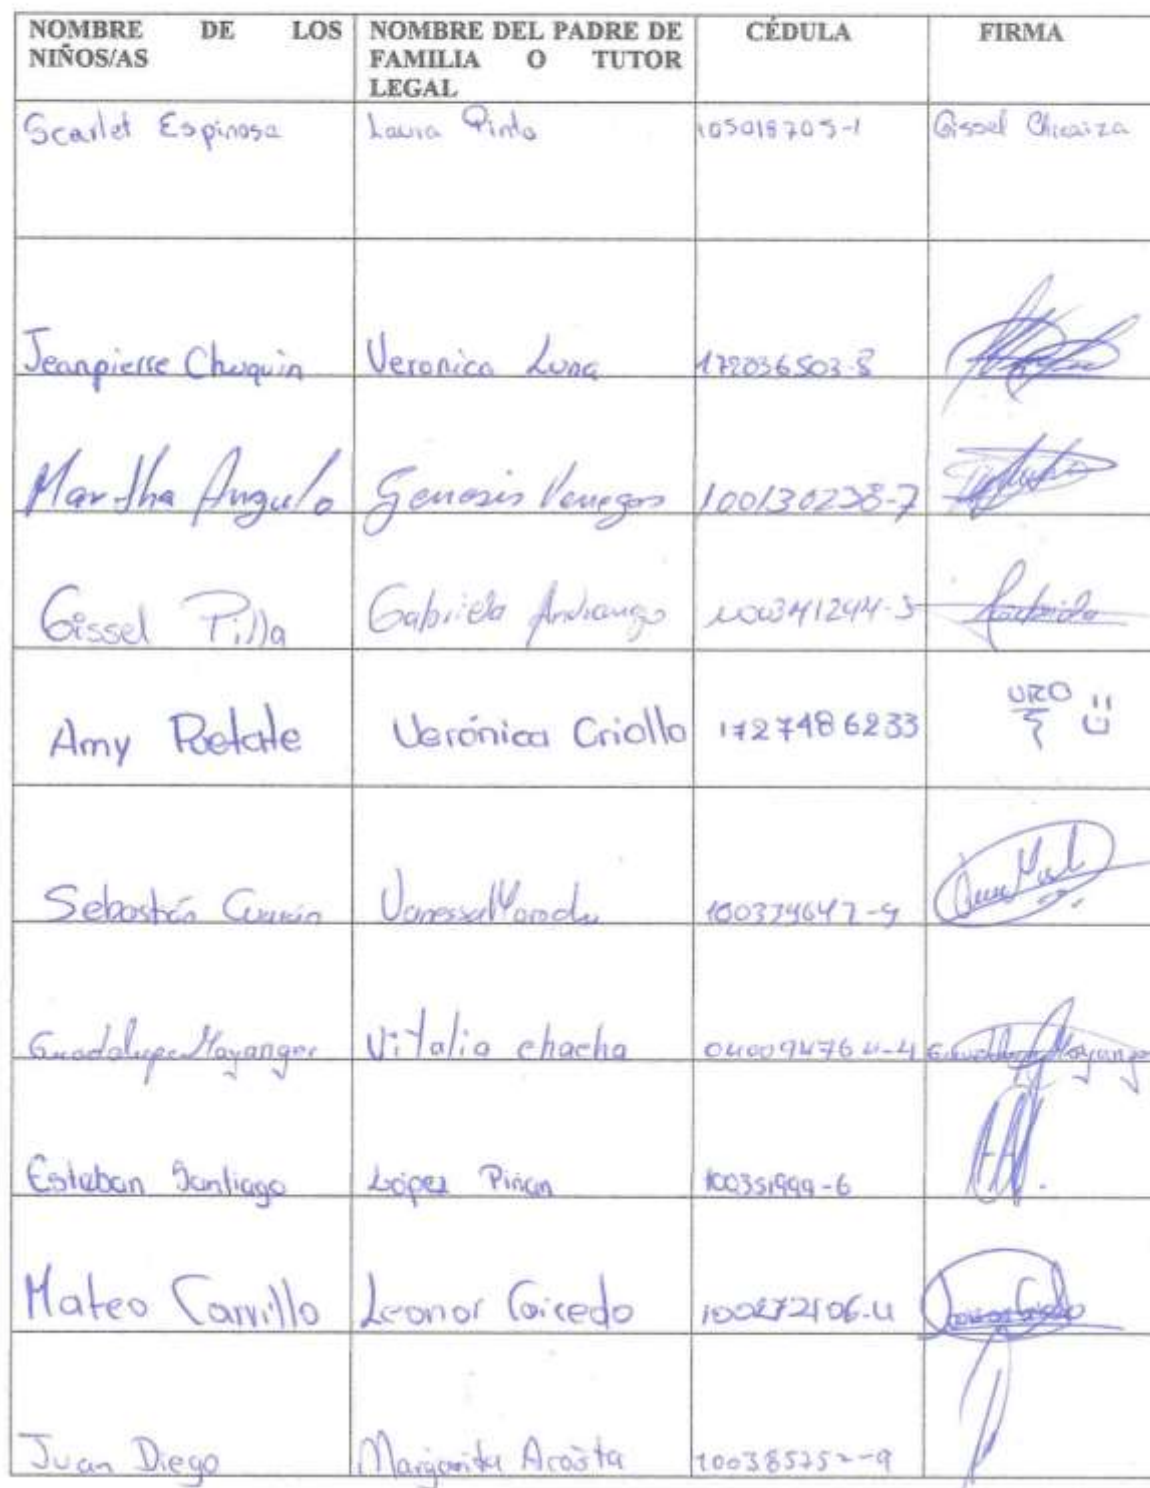 NOMBRE DE LOS NIÑOS/AS
NOMBRE DEL PADRE DE FAMILIA O TUTOR LEGAL
CÉDULA
FIRMA
Scarlet Espinosa Laura Pinto 105018705-1 Gissel Chicaiza
Jeanpierre Chuquin Veronica Luna 172036503-8
Martha Angulo Genesis Venegas 100130238-7
Gissel Pilla Gabriela Andrango Gabriela
Amy Verónica Criollo 1727486233
Sebastián Vanessa
Guadalupe Mayanger Vitalia chacha
Esteban Santiago López Piñan 100351999-6
Mateo Carrillo Leonor Caicedo
Juan Diego Margarita Acosta